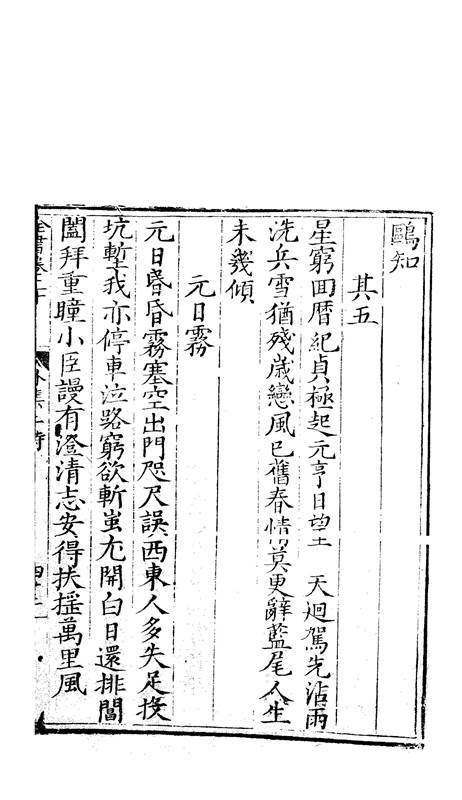 鷗知
其五
星窮回曆紀貞極起元亨日望 天迴駕先沾雨
洗兵雪猶殘歲戀風已舊春情莫更辭藍尾人生
未幾傾
元日霧
元日昏昏霧塞空出門咫尺誤西東人多失足投
坑塹我亦停車泣路窮欲斬蚩尤開白日還排閶
闔拜重瞳小臣謾有澄清志安得扶搖萬里風
全書卷二十 外集二 詩